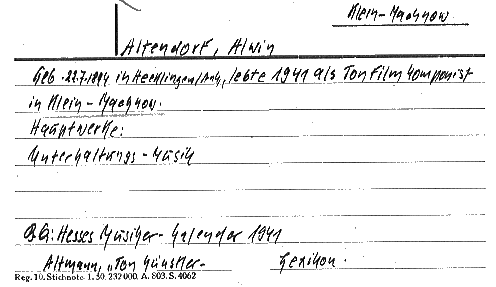 Klein-Machnow.
Altendorf, Alwin
Geb. 22.7.1884 in Hecklingen/Anh, lebte 1941 als Tonfilmkomponist
in Klein-Machnow.
Hauptwerke:
Unterhaltungs-Musik
BG: Hesses Musiker-Kalender 1941
Altmann, "Tonkünstler-Lexikon.
Reg. 10. Stichnote 1. 30. 232000. A. 803. S. 4062